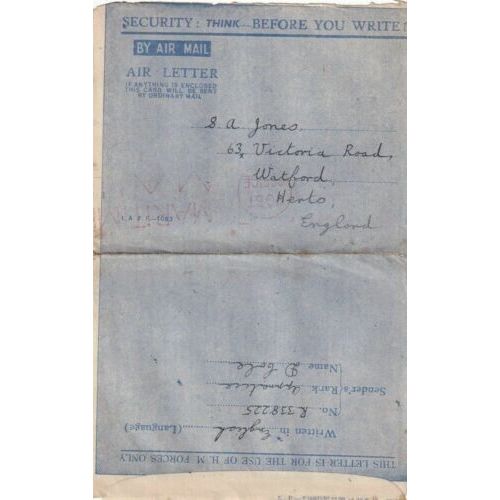 SECURITY: THINK—BEFORE YOU WRITE!
BY AIR MAIL
AIR LETTER
IF ANYTHING IS ENCLOSED
THIS CARD WILL BE SENT
BY ORDINARY MAIL
S A Jones,
63, Victoria Road,
Watford,
Herts,
England
I.A.F.R—1083
THIS LETTER IS FOR THE USE OF H. M FORCES ONLY
Written in English (Language)
No. R 338225
Sender's Rank
Name D Cole